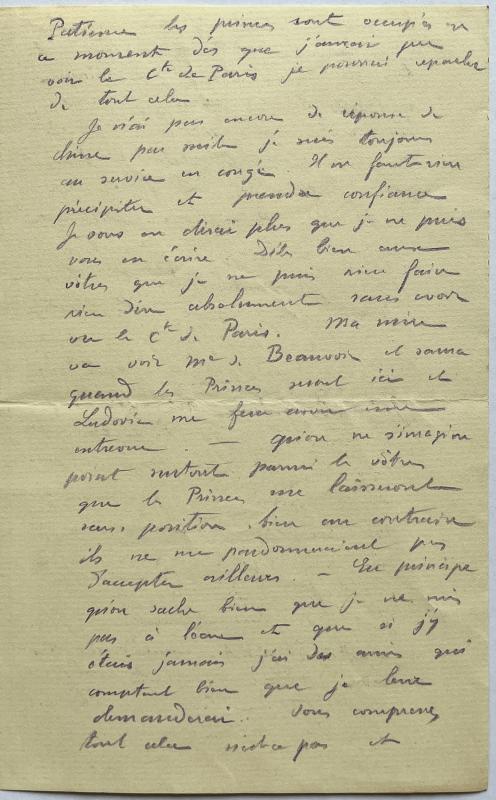 Patience les princes sont occupés en
ce moment dès que j'aurai pu
voir le Cte de Paris je pourrai reparler
de tout cela.
Je n'ai pas encore de réponse de
chine par suite je suis toujours
au service en congé. Il ne faut rien
précipiter et prendre confiance
Je vous en dirai plus que je ne puis
vous en écrire. Dites bien aux
vôtres que je ne puis rien faire
rien dire absolument sans avoir
vu le Cte de Paris. Ma mère
va voir Me de Beauvoir et saura
quand les Princes seront ici et
Ludovic me fera avoir une
entrevue. — qu'on ne s'imagine
point surtout parmi les vôtres
que les Princes me laisseront
sans position, bien au contraire
ils ne me pardonneraient pas
d'accepter ailleurs. — En principe
qu'on sache bien que je ne suis
pas à l'écart et que si j'y
étais jamais j'ai des amis qui
comptent bien que je leur
demanderai. Vous comprenez
tout cela n'est-ce pas et